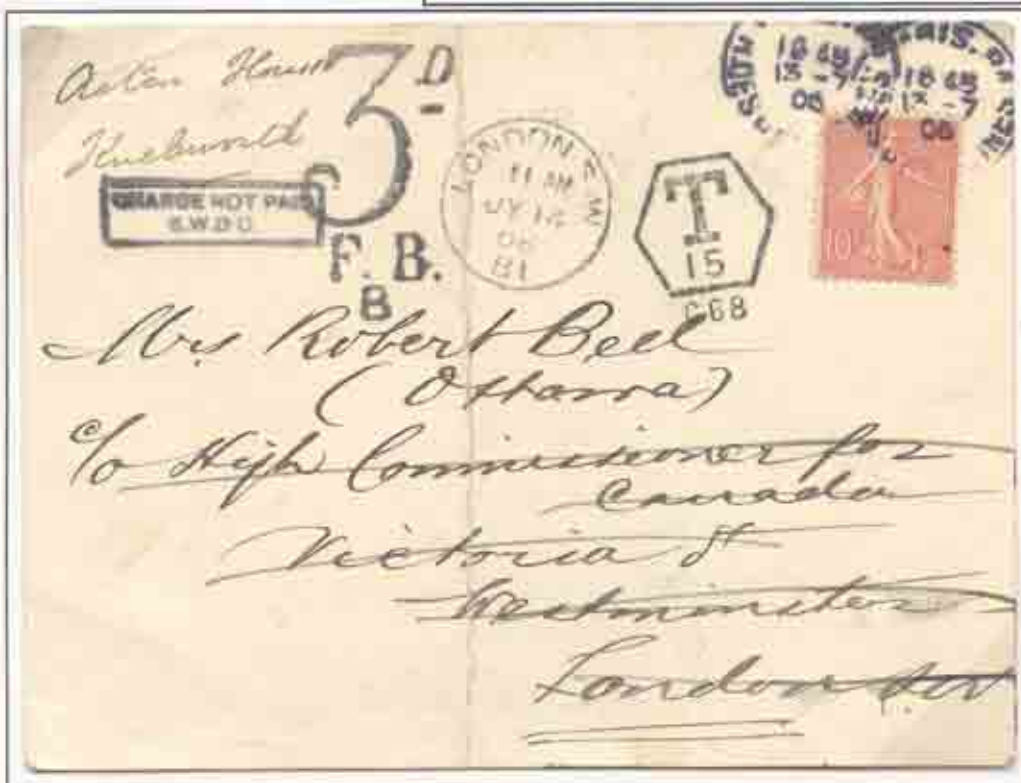 Acton House
Knebworth
CHARGE NOT PAID
S.W.D.O
3D
F.B.
B
LONDON.S.W
11 AM
JY 14
06
81
T
15
C68
PARIS.
18 45
13 - 7
06
10
Mrs Robert Bell
(Ottawa)
c/o High Commissioner for
Canada
Victoria St
Westminster
London SW